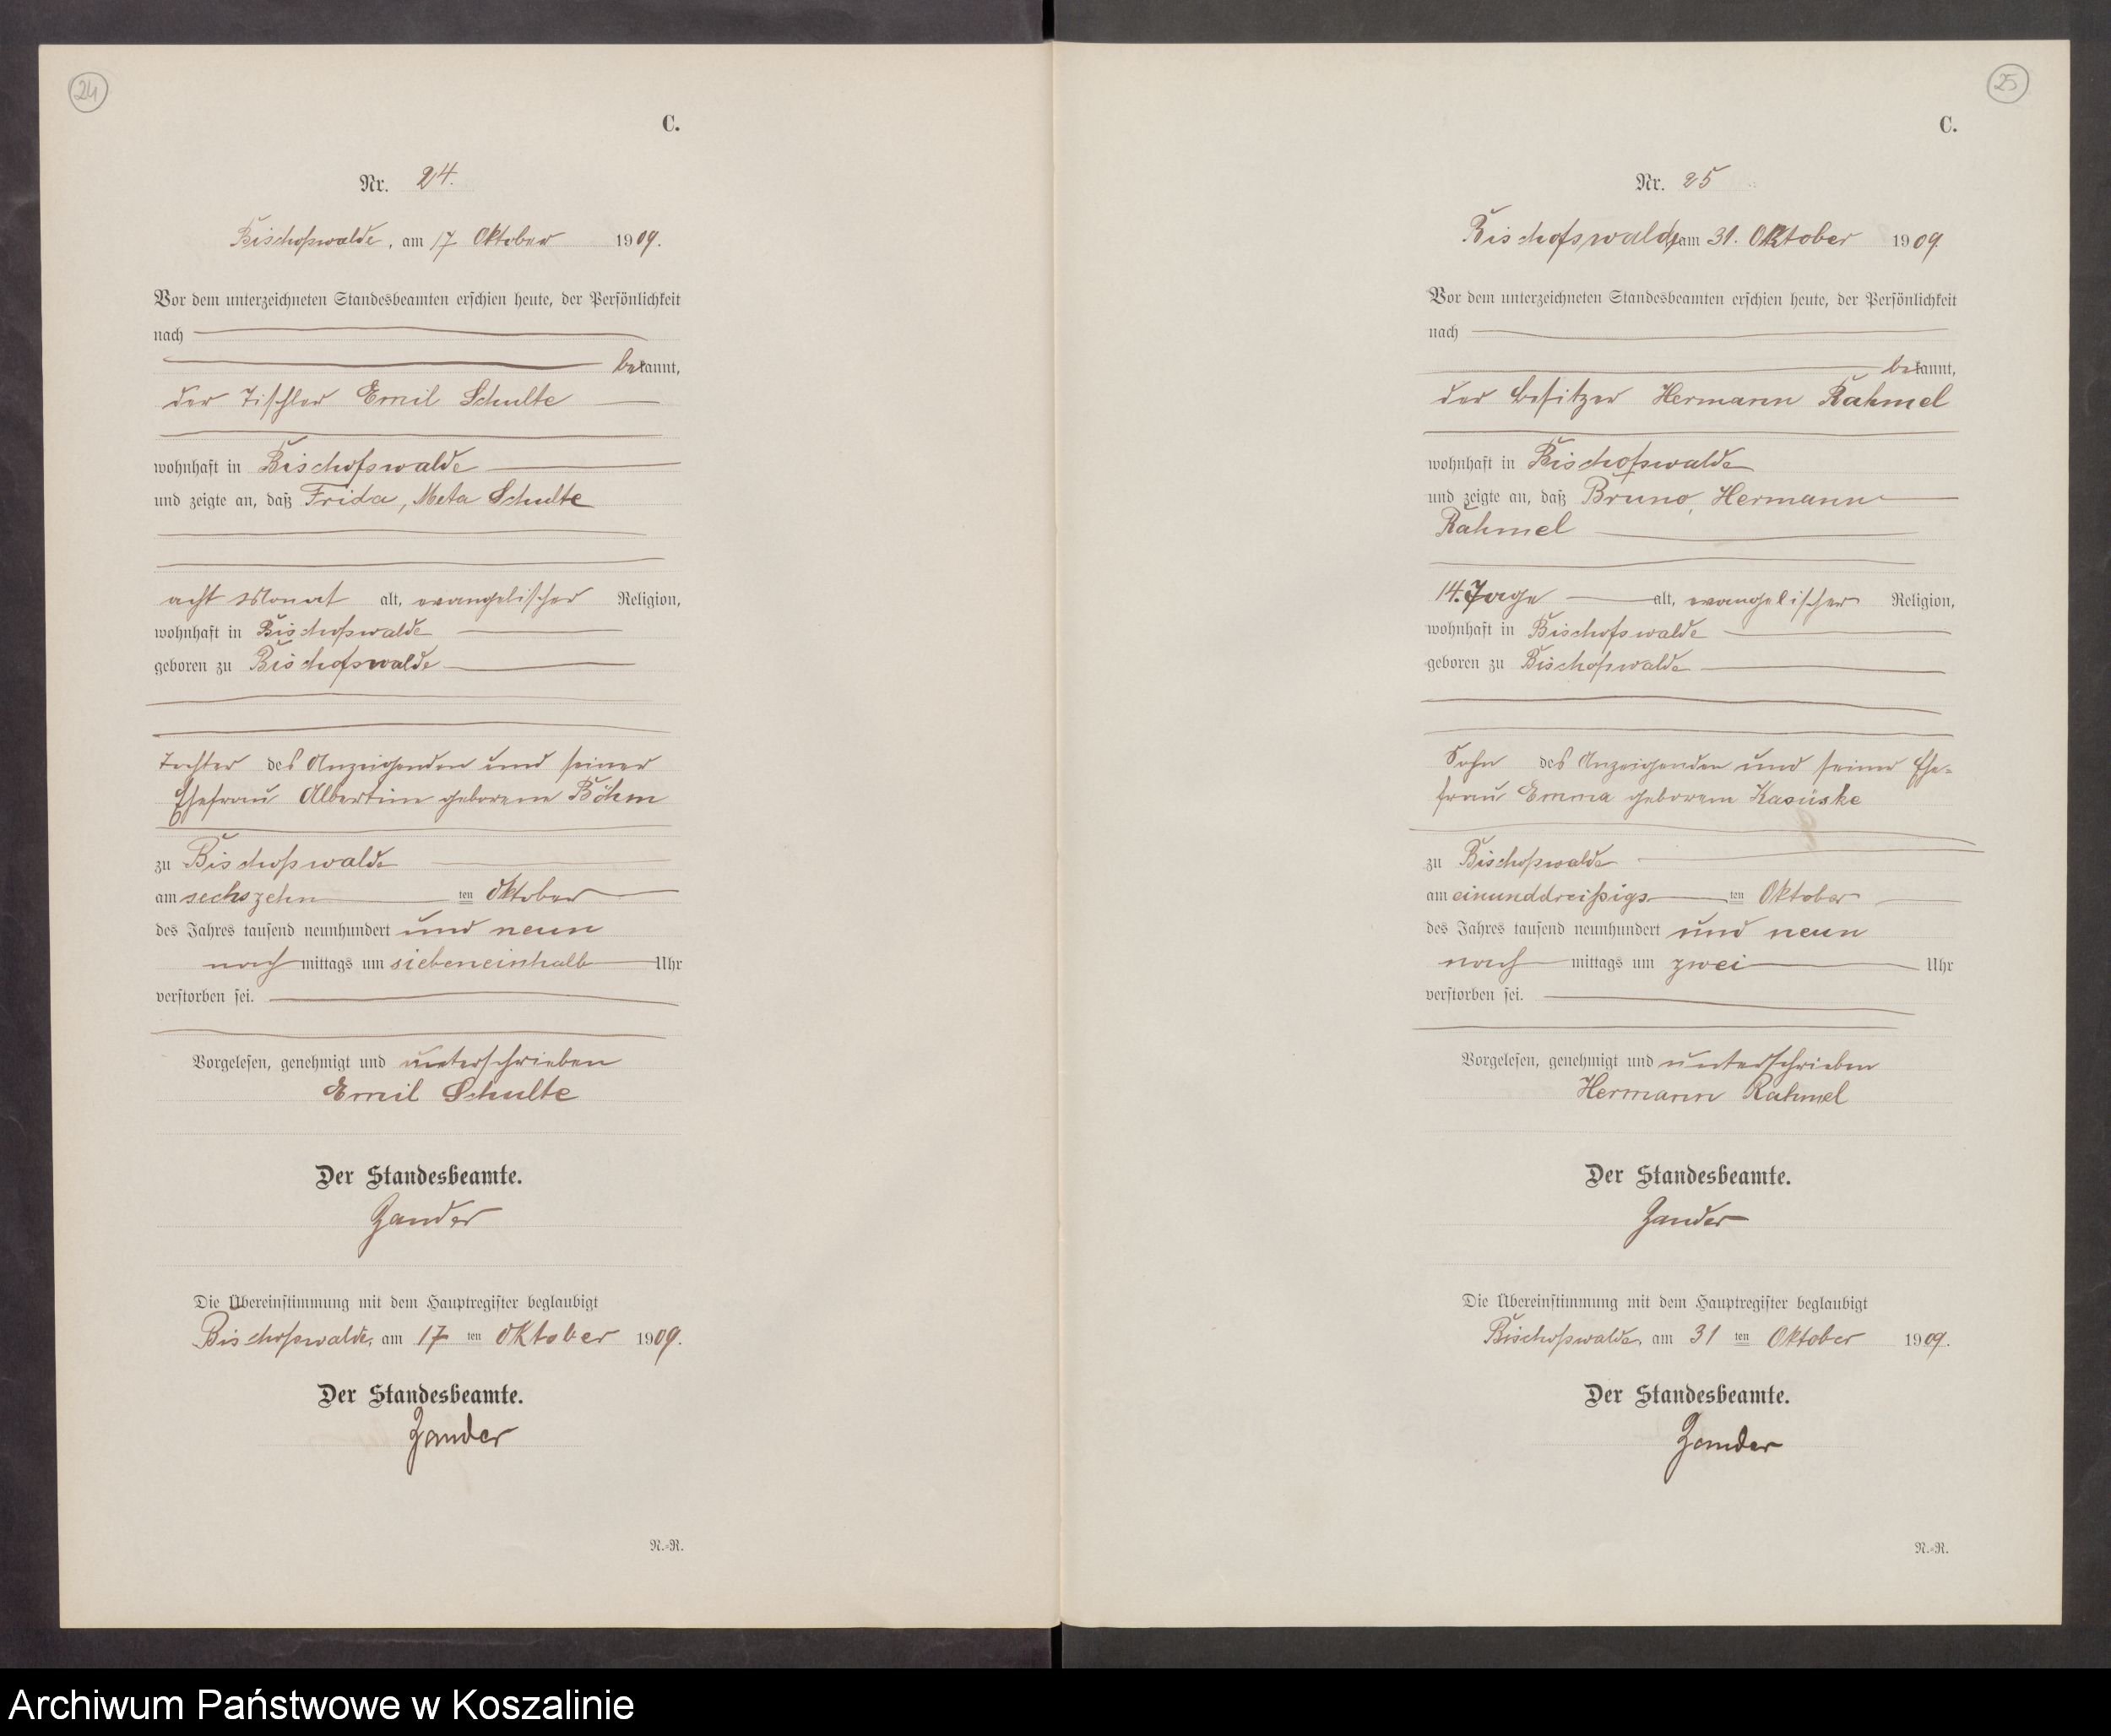 24
C.
Nr. 24.
Bischofswalde, am 17 Oktober 1909.
Vor dem unterzeichneten Standesbeamten erschien heute, der Persönlichkeit
nach
bekannt,
der Tischler Emil Schulte
wohnhaft in Bischofswalde
und zeigte an, daß Frida, Meta Schulte
acht Monat alt, evangelischer Religion,
wohnhaft in Bischofswalde
geboren zu Bischofswalde
Tochter des Anzeigenden und seiner
Ehefrau Albertine geborene Böhm
zu Bischofswalde
am sechszehn ten Oktober
des Jahres tausend neunhundert und neun
nach mittags um siebeneinhalb Uhr
verstorben sei.
Vorgelesen, genehmigt und unterschrieben
Emil Schulte
Der Standesbeamte.
Zander
Die Übereinstimmung mit dem Hauptregister beglaubigt
Bischofswalde, am 17 ten Oktober 1909.
Der Standesbeamte.
Zander
N.-R.
25
C.
Nr. 25
Bischofswalde, am 31. Oktober 1909
Vor dem unterzeichneten Standesbeamten erschien heute, der Persönlichkeit
nach
bekannt,
der Besitzer Hermann Rahmel
wohnhaft in Bischofswalde
und zeigte an, daß Bruno, Hermann
Rahmel
14. Tage alt, evangelischer Religion,
wohnhaft in Bischofswalde
geboren zu Bischofswalde
Sohn des Anzeigenden und seiner Ehe-
frau Emma geborene Kasüske
zu Bischofswalde
am einunddreißigs ten Oktober
des Jahres tausend neunhundert und neun
nach mittags um zwei Uhr
verstorben sei.
Vorgelesen, genehmigt und unterschrieben
Hermann Rahmel
Der Standesbeamte.
Zander
Die Übereinstimmung mit dem Hauptregister beglaubigt
Bischofswalde, am 31 ten Oktober 1909.
Der Standesbeamte.
Zander
N.-R.
Archiwum Państwowe w Koszalinie